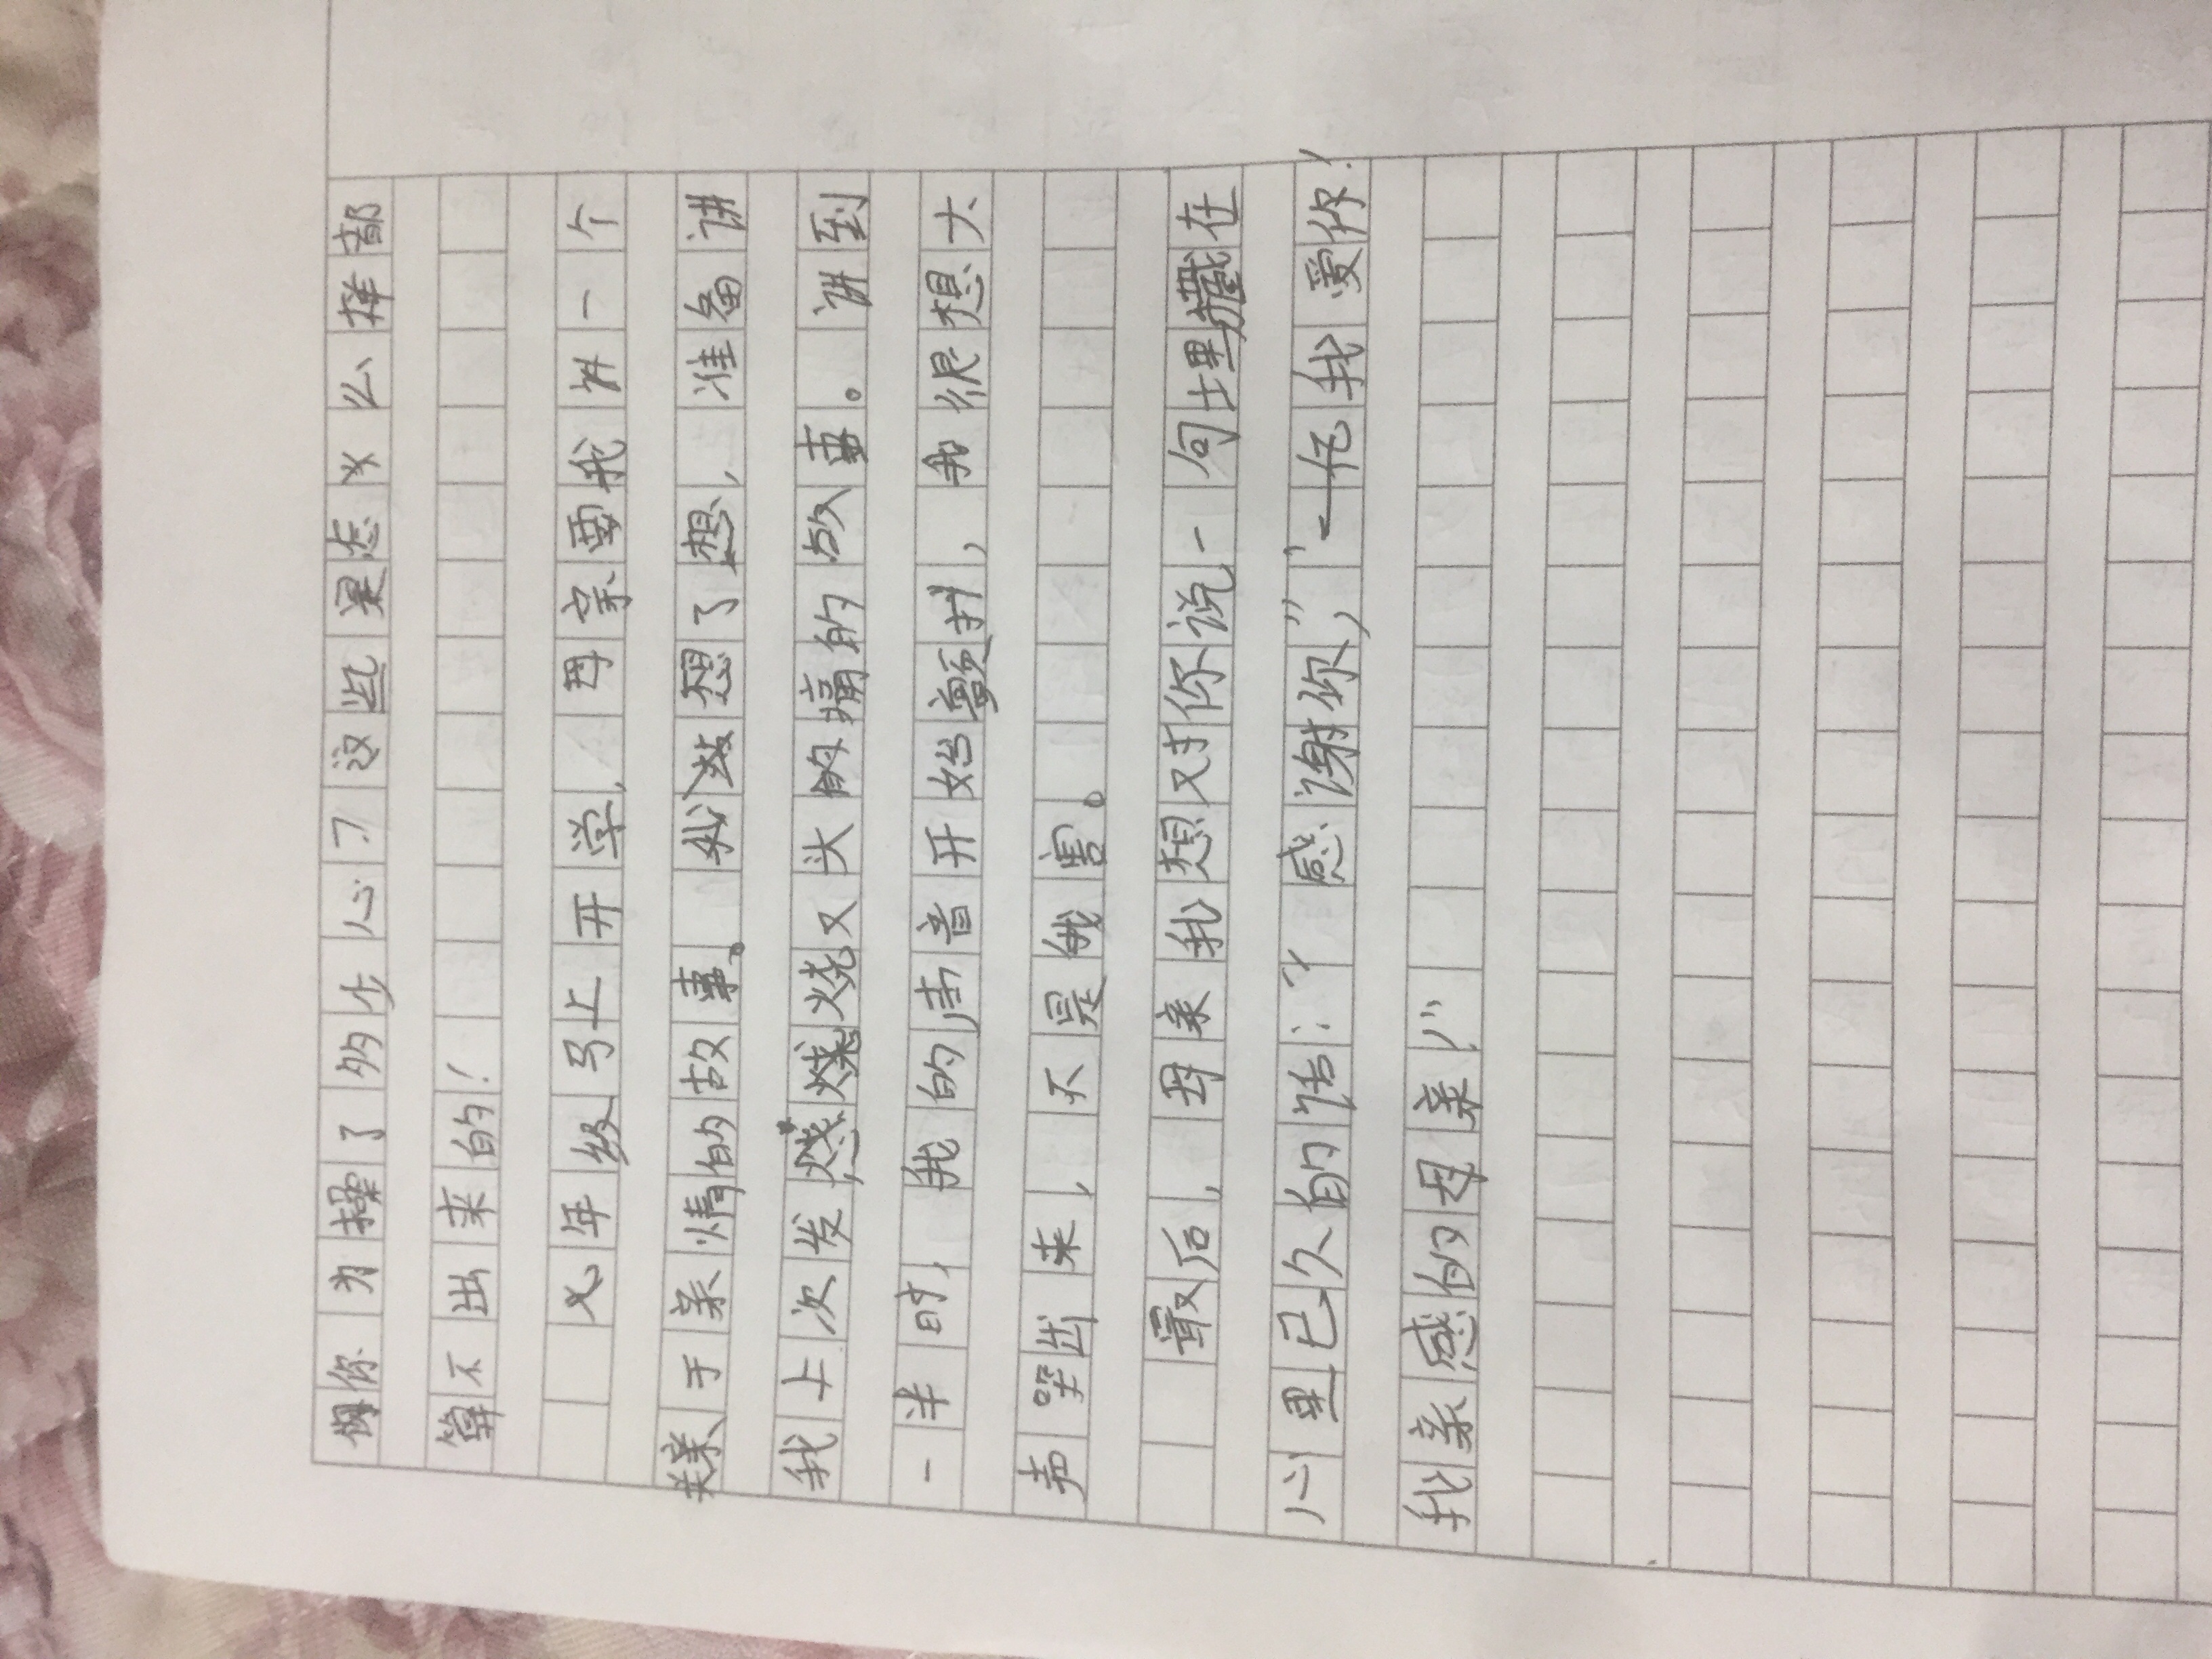 你为操了多少心了这些累怎么样都
算不出来的!
七年级马上开学,母亲要我讲一个
关于亲情的故事。我想了想,准备讲
我上次发烧又头的痛的故事。讲到
一半时,我的声音开始颤抖,我很想大
声哭出来,不是我害。
最后,母亲我想对你说一句埋藏在
心里已久的话:“感谢你,”“我爱你!
我亲感的母亲!”